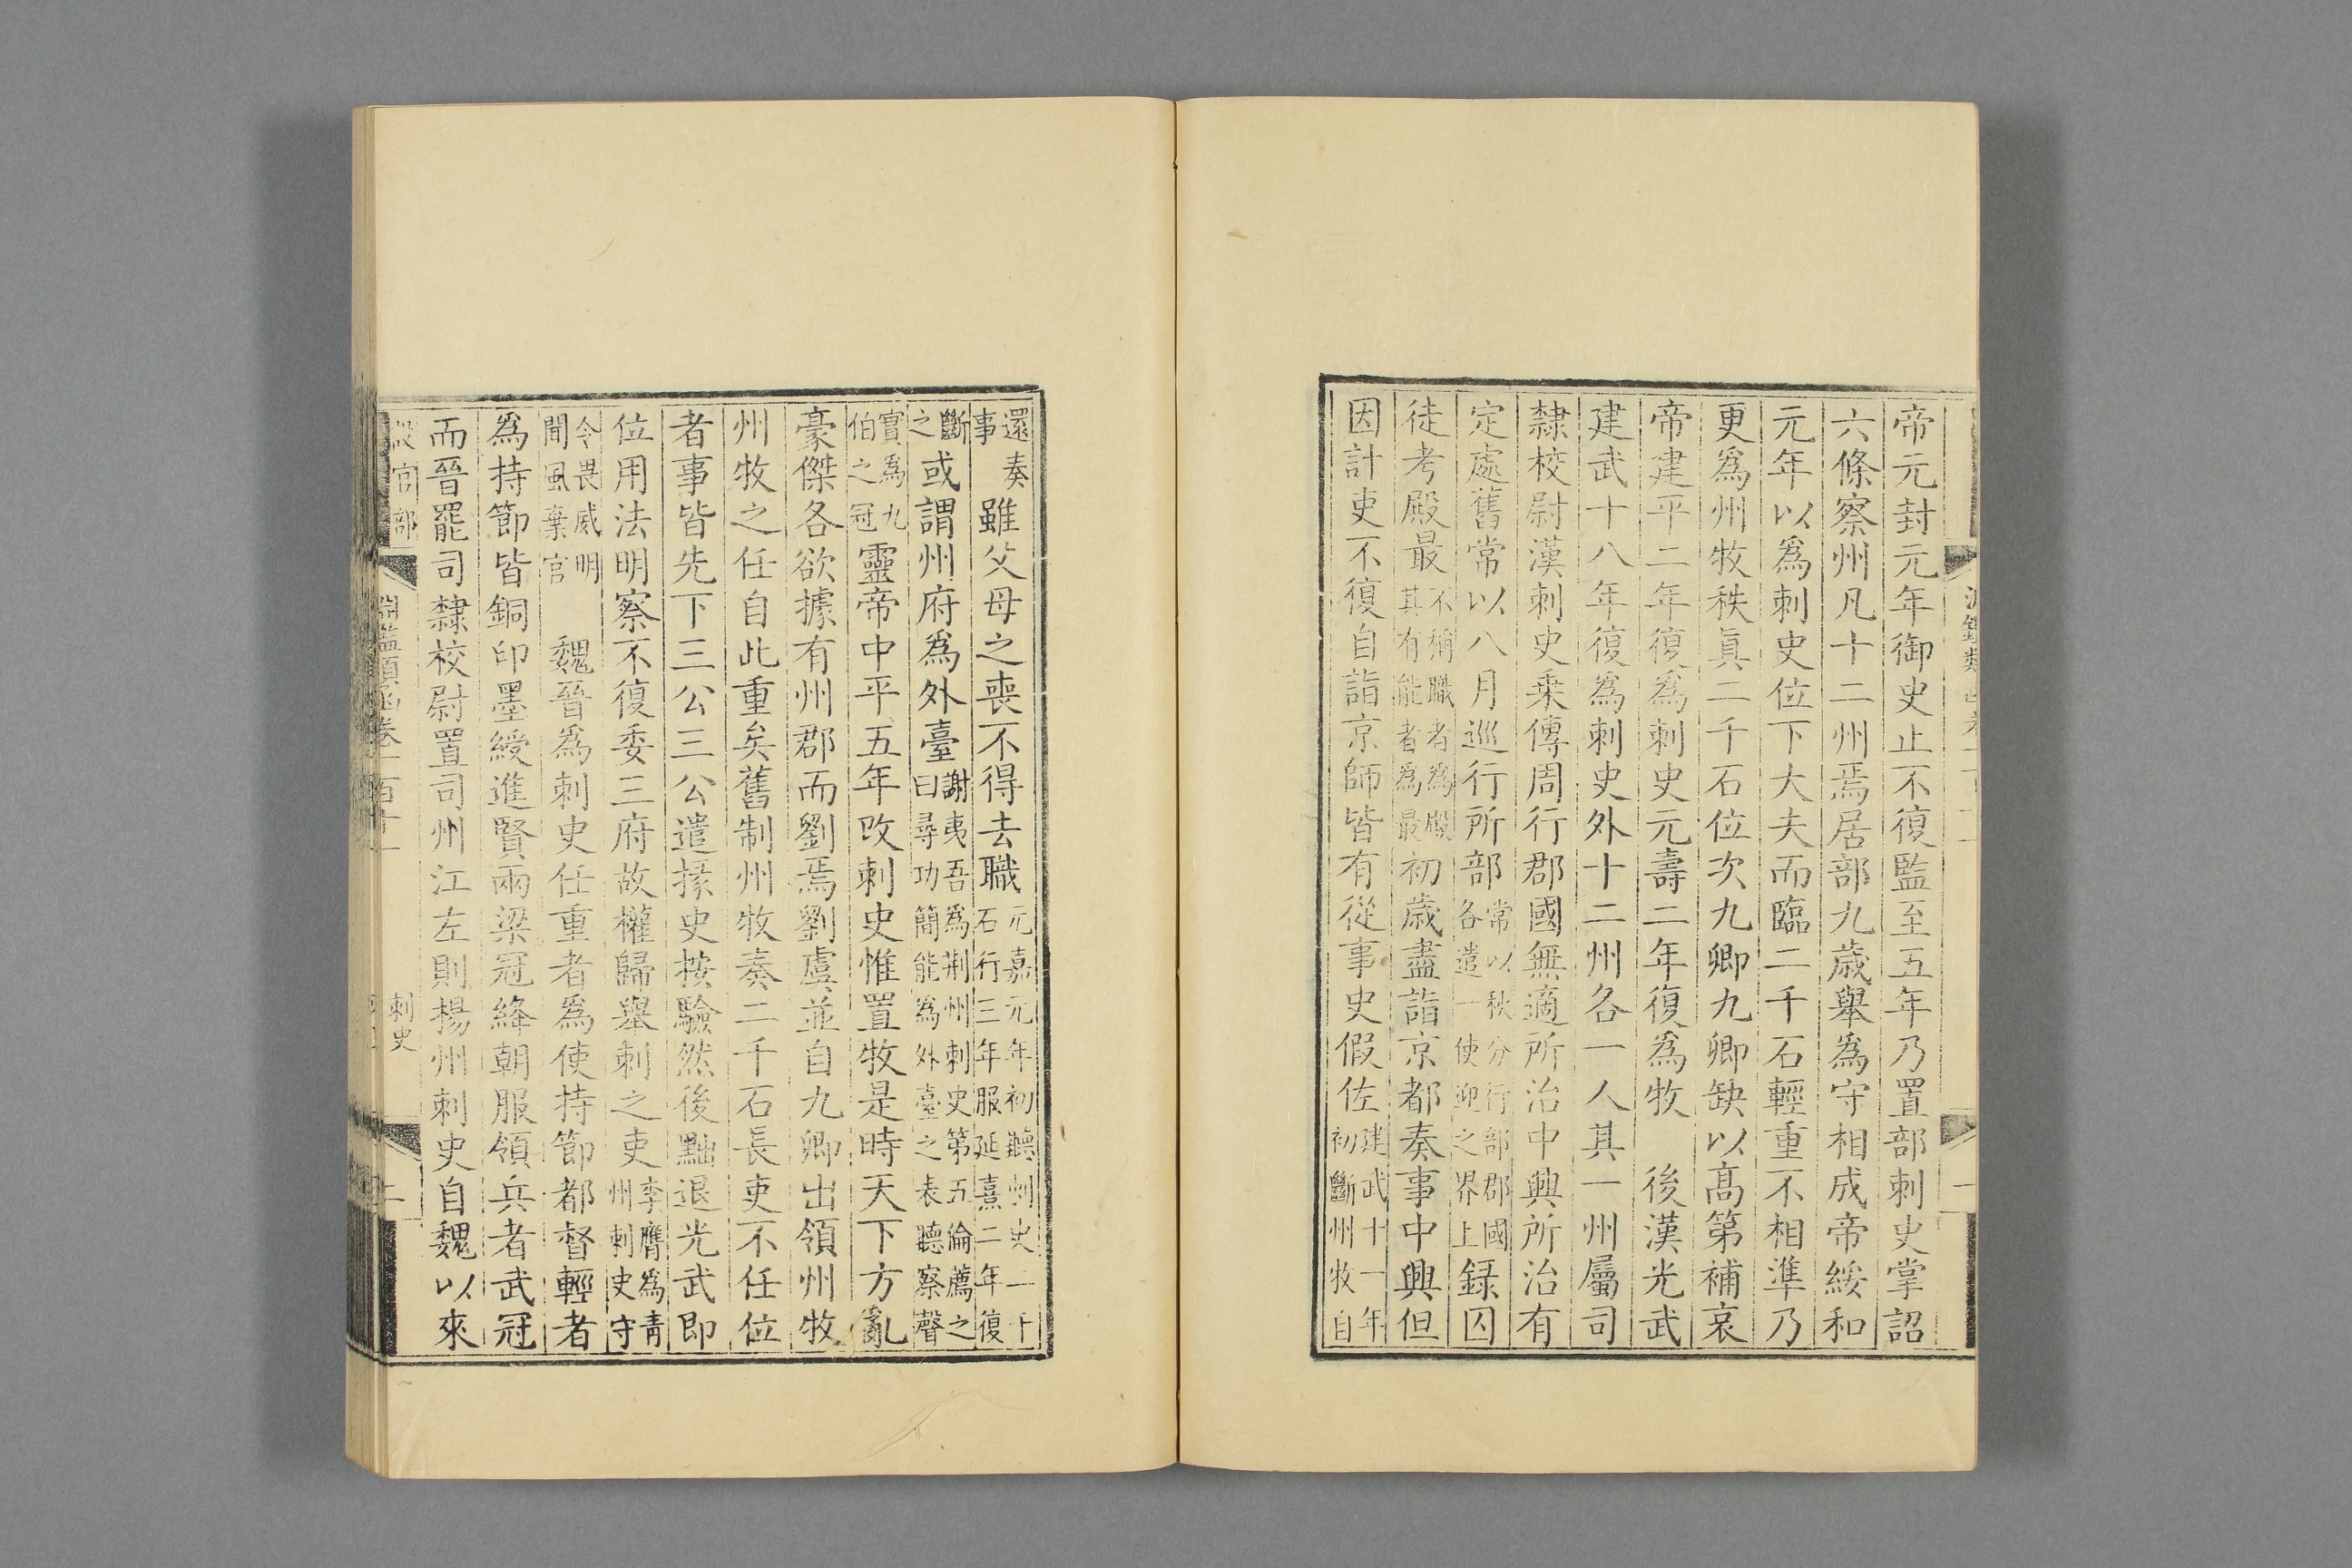 帝元封元年御史止不復監至五年乃置部刺史掌詔
六條察州凡十二州焉居部九歲舉爲守相成帝綏和
元年以爲刺史位下大夫而臨二千石輕重不相準乃
更爲州牧秩眞二千石位次九卿九卿缺以高第補哀
帝建平二年復爲刺史元壽二年復爲牧　後漢光武
建武十八年復爲刺史外十二州各一人其一州屬司
隸校尉漢刺史乗傳周行郡國無適所治中興所治有
定處舊常以八月巡行所部常以秋分行部郡國各遣一使迎之界上録囚
徒考殿最不稱職者爲殿其有能者爲最初歲盡詣京都奏事中興但
因計吏不復自詣京師皆有從事史假佐建武十一年初斷州牧自
還奏事雖父母之喪不得去職元嘉元年初聽刺史二千石行三年服延熹二年復
斷之或謂州府爲外臺謝夷吾爲荆州刺史第五倫薦之曰尋功簡能爲外臺之表聽察聲
實爲九伯之冠靈帝中平五年改刺史惟置牧是時天下方亂
豪傑各欲據有州郡而劉焉劉虞並自九卿出領州牧
州牧之任自此重矣舊制州牧奏二千石長吏不任位
者事皆先下三公三公遣掾史按驗然後黜退光武即
位用法明察不復委三府故權歸舉刺之吏李膺爲青州刺史守
令畏威明聞風棄官　魏晉爲刺史任重者爲使持節都督輕者
爲持節皆銅印墨綬進賢兩梁冠絳朝服領兵者武冠
而晉罷司隸校尉置司州江左則揚州刺史自魏以來
設官部
淵鑑類函卷一百十二
刺史
二